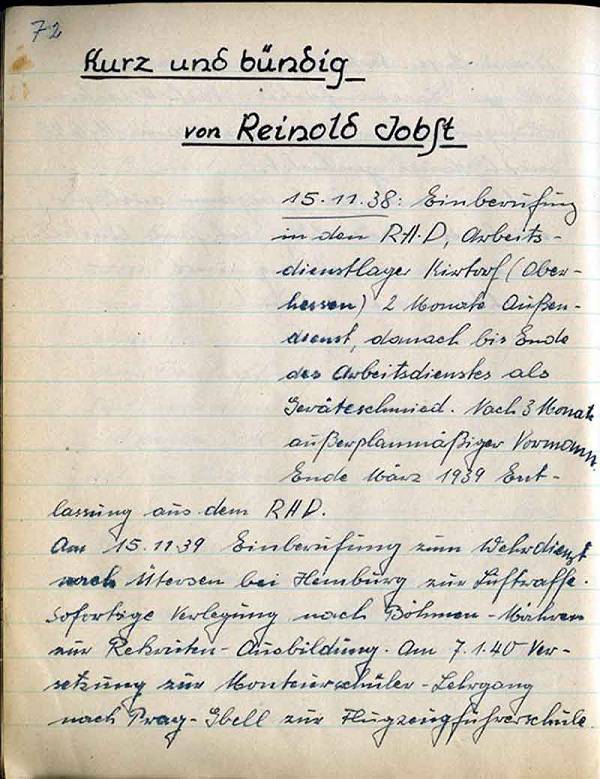 72
Kurz und bündig
von Reinold Jobst
15.11.38: Einberufung
in den RAD, Arbeits-
dienstlager Kirtorf (Ober-
hessen) 2 Monate Außen-
dienst, danach bis Ende
des Arbeitsdienstes als
Geräteschmied. Nach 3 Monate
außerplanmäßiger Vormann.
Ende März 1939 Ent-
lassung aus dem RAD.
Am 15.11.39 Einberufung zum Wehrdienst
nach Ütersen bei Hamburg zur Luftwaffe.
Sofortige Verlegung nach Böhmen-Mähren
zur Rekruten-Ausbildung. Am 7.1.40 Ver-
setzung zur Monteurschüler-Lehrgang
nach Prag-Gbell zur Flugzeugführerschule.